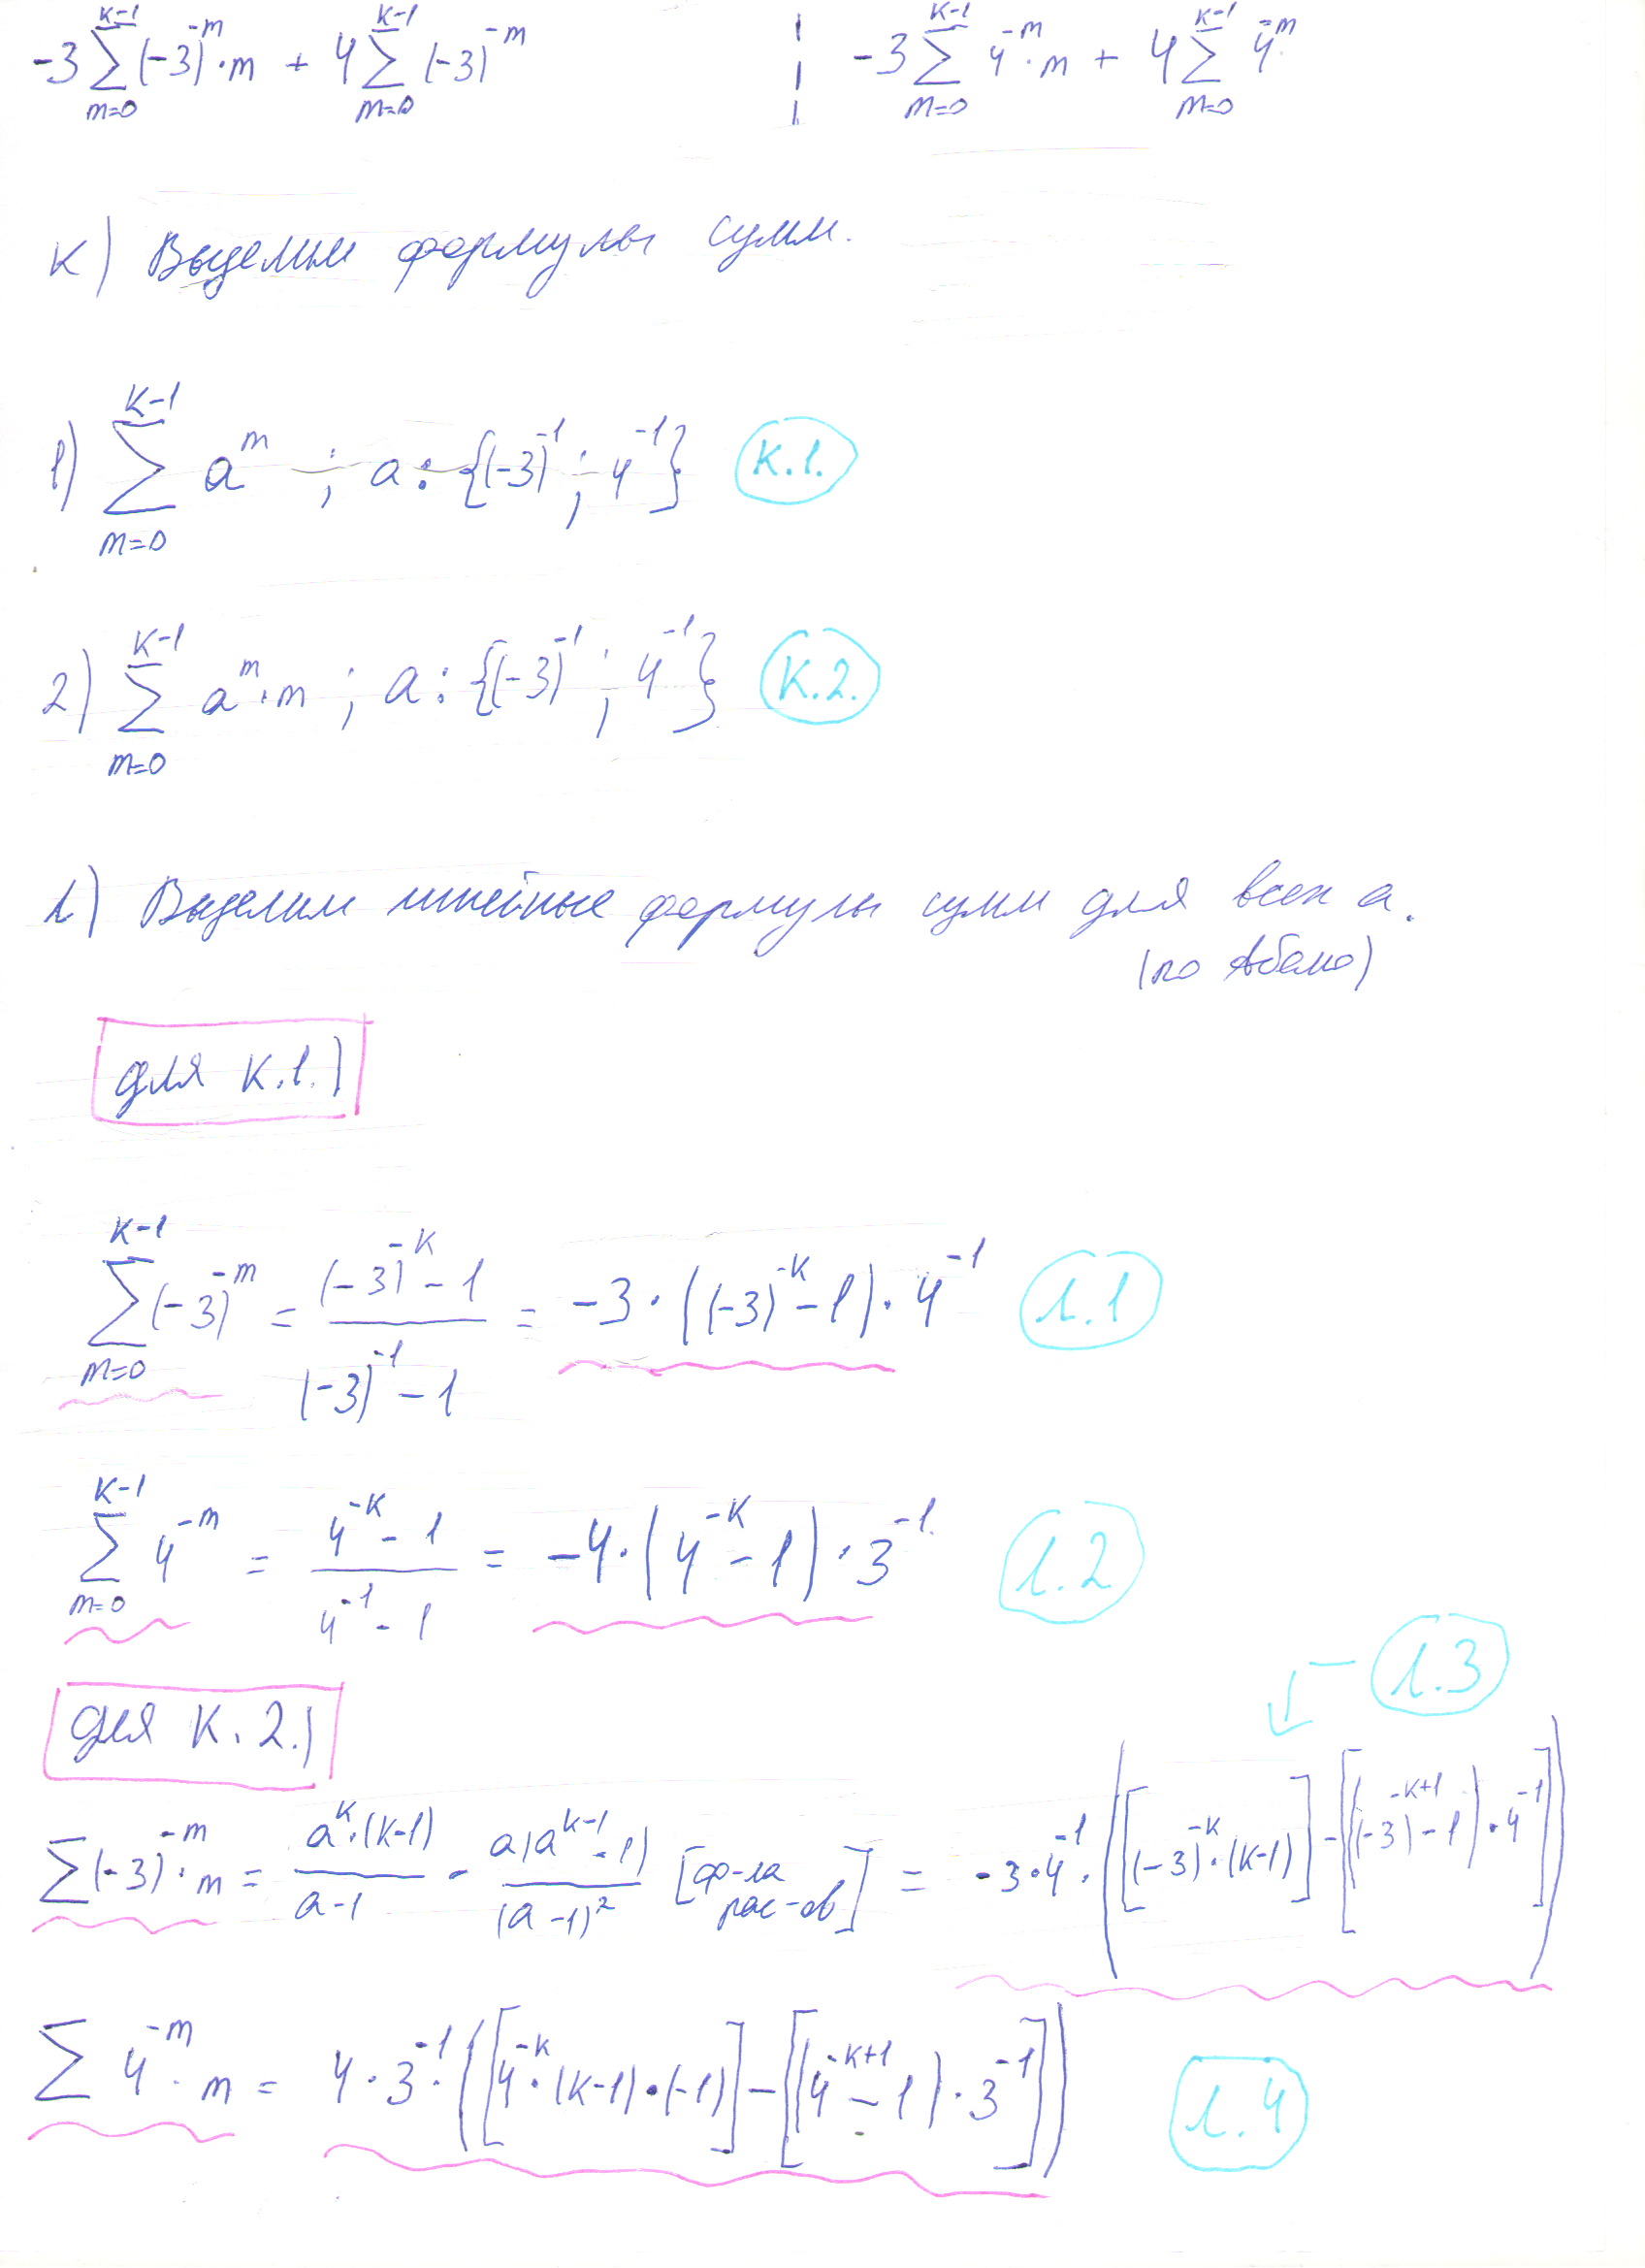 -3 ∑_{m=0}^{K-1} (-3)^{-m}·m + 4 ∑_{m=0}^{K-1} (-3)^{-m} ¦ -3 ∑_{m=0}^{K-1} 4^{-m}·m + 4 ∑_{m=0}^{K-1} 4^{-m}
К) Выделим формулы сумм.
1) ∑_{m=0}^{K-1} a^m ; a: {(-3)^{-1}; 4^{-1}} К.1.
2) ∑_{m=0}^{K-1} a^m·m ; a: {(-3)^{-1}; 4^{-1}} К.2.
Л) Выделим линейные формулы сумм для всех a.
(по Абелю)
для К.1.)
∑_{m=0}^{K-1} (-3)^{-m} = ((-3)^{-K} - 1)/((-3)^{-1} - 1) = -3·((-3)^{-K} - 1)·4^{-1} Л.1
∑_{m=0}^{K-1} 4^{-m} = (4^{-K} - 1)/(4^{-1} - 1) = -4·(4^{-K} - 1)·3^{-1} Л.2
Л.3
для К.2.)
∑(-3)^{-m}·m = (a^K·(K-1))/(a-1) - (a(a^{K-1} - 1))/((a-1)^2) [ф-ла рас-ов] = -3·4^{-1}·([(-3)^{-K}·(K-1)] - [((-3)^{-K+1} - 1)·4^{-1}])
∑ 4^{-m}·m = 4·3^{-1}·([4^{-K}·(K-1)·(-1)] - [(4^{-K+1} - 1)·3^{-1}]) Л.4